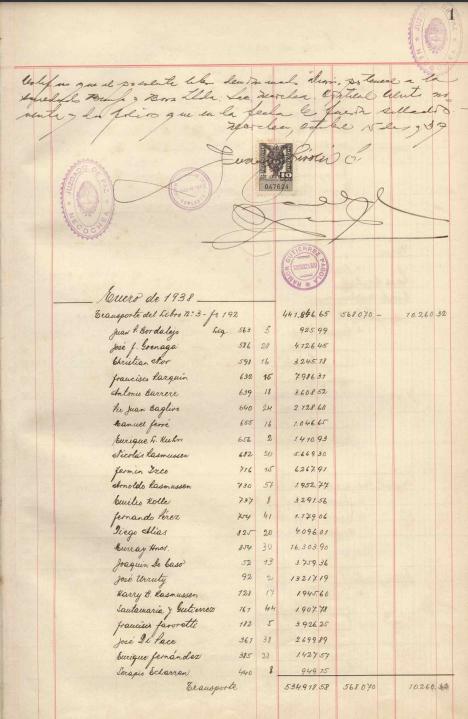 1
que el presente libro denominado Diario, pertenece a la
y Hnos Ltda.
y dos folios que en la fecha
Necochea, octubre 15 de 1937
JUZGADO DE PAZ
NECOCHEA
10
047624
RAMON GUTIERREZ
Enero de 1938
Transporte del Libro Nº 3 - fs 192 441.896.65 568.070 - 10.260.32
Juan P. Bordalejo Liq. 563 5 925.99
José J. Goenaga 586 28 4126.45
Christian 591 16 3245.18
Francisco Larquin 632 15 7986.31
Antonio Barrere 639 18 3.608.52
Juan Baglivo 640 24 2128.60
Manuel Ferré 655 16 1.046.65
Enrique L. Kuhn 656 2 1410.93
Nicolás Rasmussen 682 20 5.669.30
Fermin Izco 716 15 6267.91
Arnoldo Rasmussen 730 51 1952.77
Emilio Rolla 737 8 3291.56
Fernando Pérez 754 41 1.179.06
Diego Alias 825 20 4096.01
Murray Hnos. 854 30 16.303.90
Joaquin De Caso 52 13 3759.36
José Urruty 92 2 13217.19
Harry B. Rasmussen 123 17 1945.60
Santamaria y Gutierrez 161 44 1907.78
Francisco Favoretti 182 5 3926.25
José Di Pace 361 38 2699.89
Enrique Fernández 385 23 1427.57
Serapio Echarren 440 8 949.15
Transporte 534918.58 568.070 10.260.32